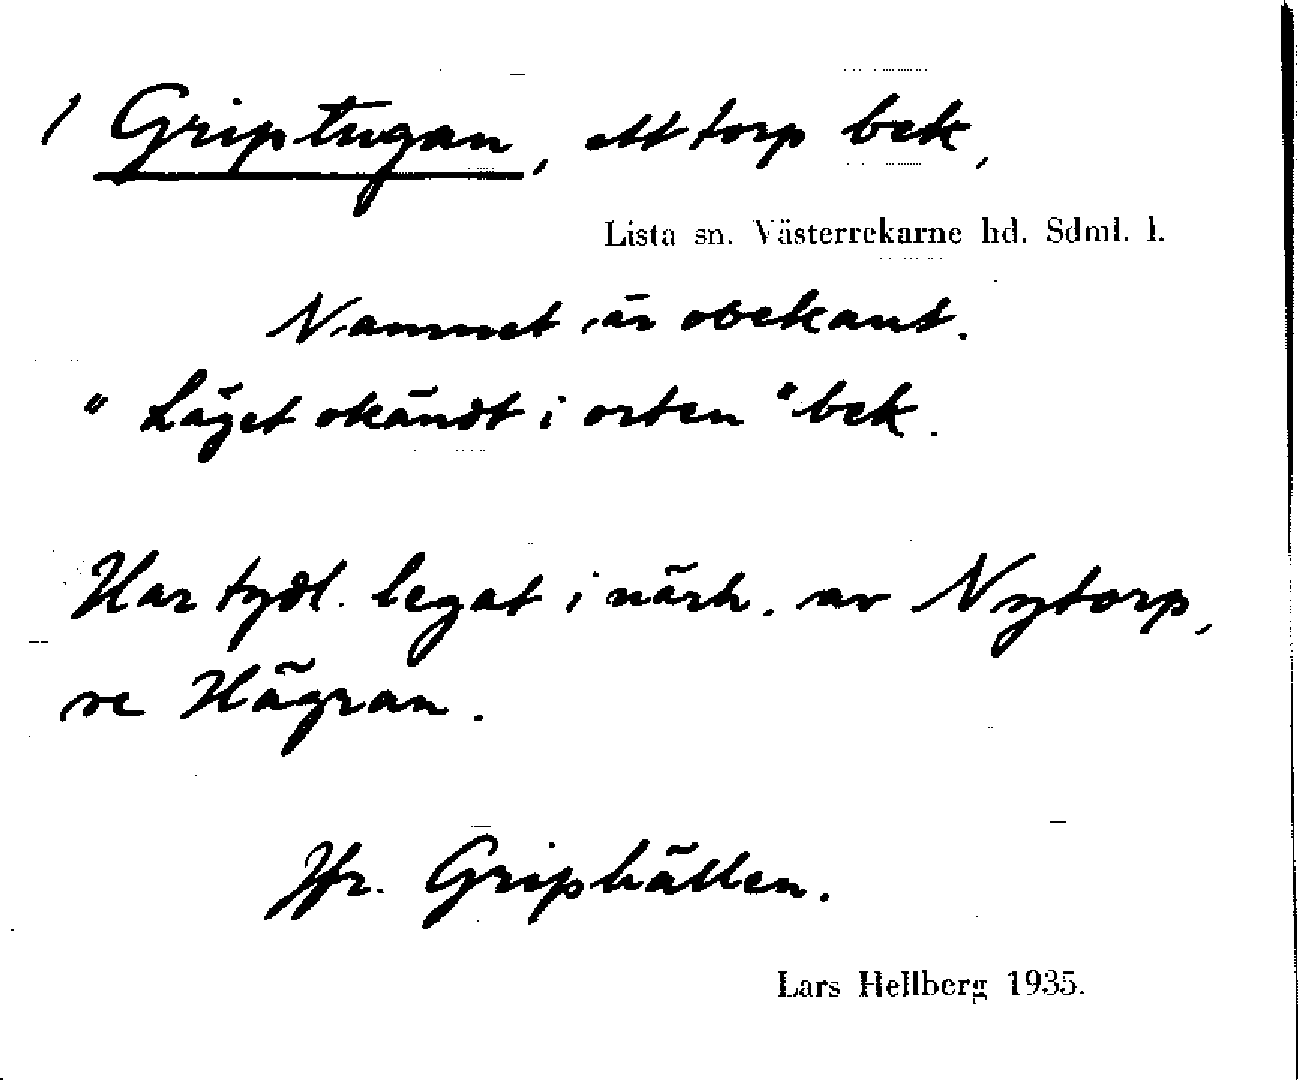 / Griptugan, ett torp bek,
Lista sn. Västerrekarne hd. Sdml. l.
Namnet är obekant.
"Läget okändt i orten" bek.
Har tydl. legat i närh. av Nytorp,
se Hägran.
Jfr. Griphällen.
Lars Hellberg 1935.